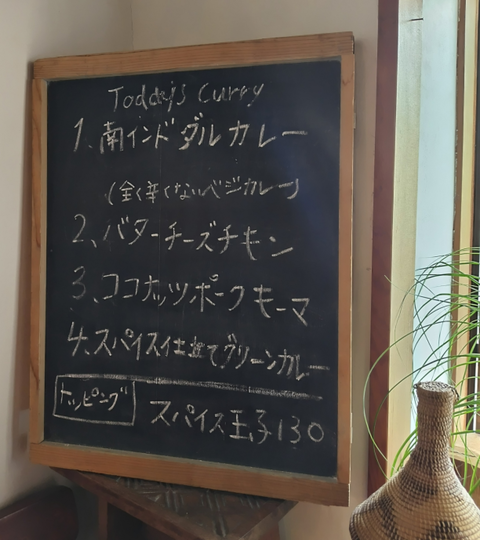 Today's Curry
1、南インド ダルカレー
(全く辛くないベジカレー)
2、バターチーズチキン
3、ココナッツポークキーマ
4、スパイス仕立てグリーンカレー
トッピング スパイス玉子130